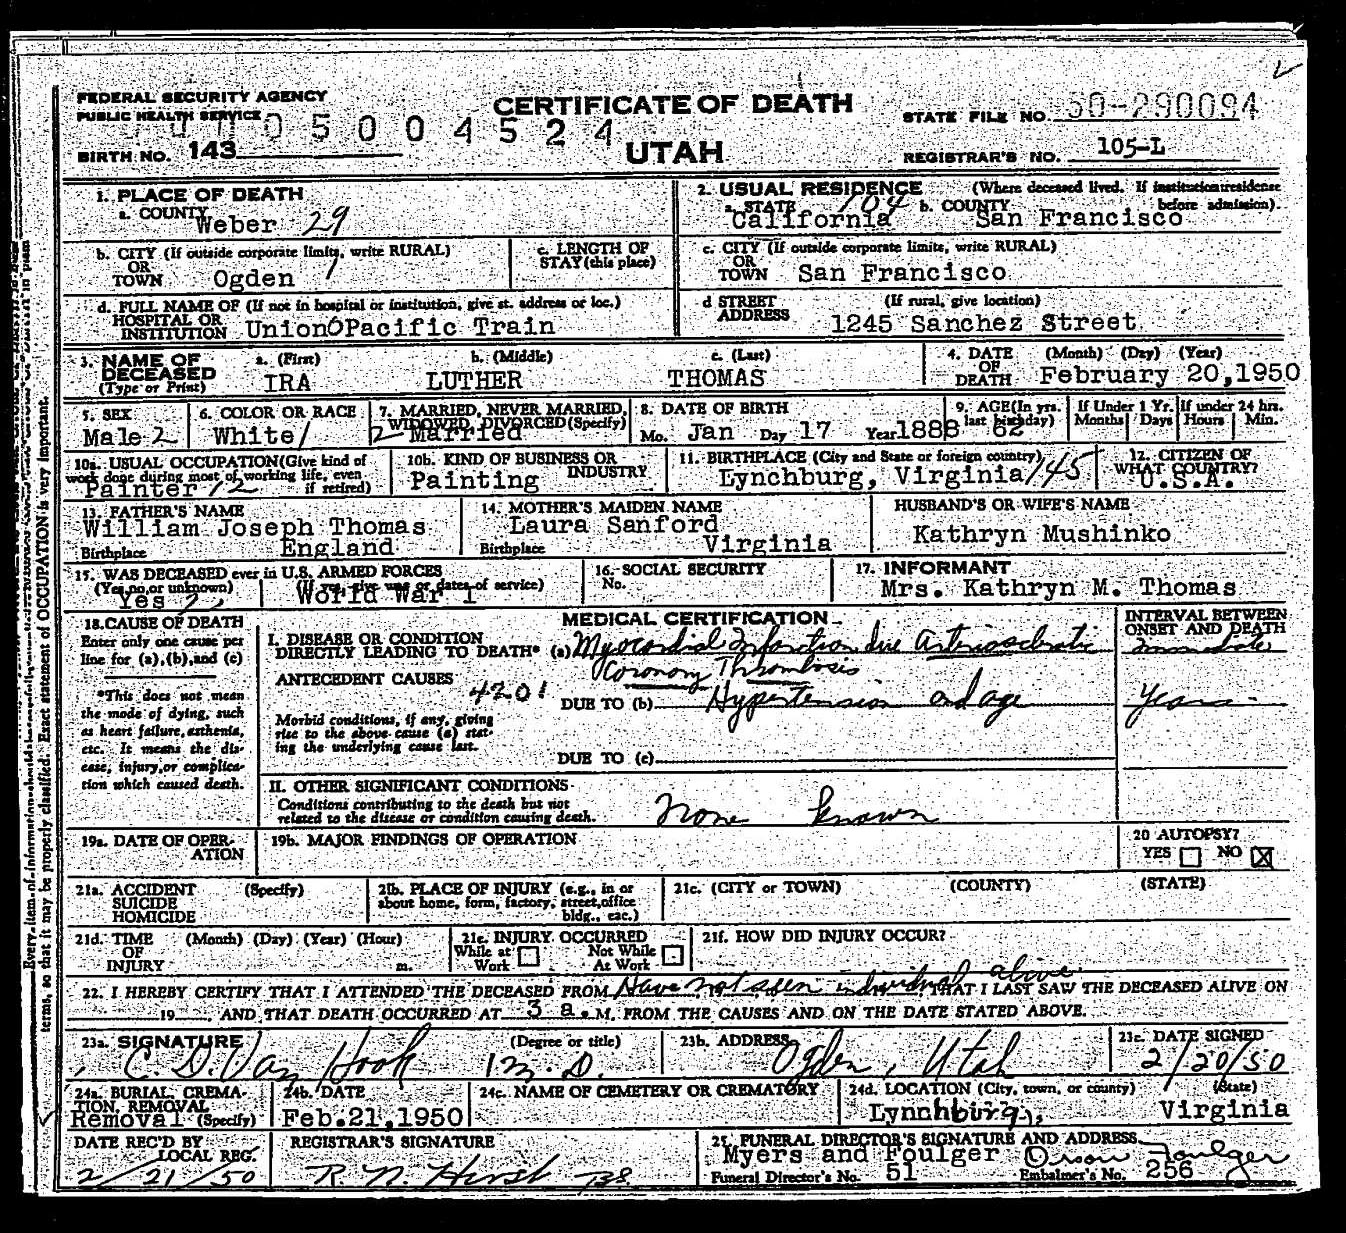 FEDERAL SECURITY AGENCY
PUBLIC HEALTH SERVICE
0 5 0 0 4 5 2 4
BIRTH NO. 143
CERTIFICATE OF DEATH
UTAH
STATE FILE NO. 50-290094
REGISTRAR'S NO. 105-L
1. PLACE OF DEATH
a. COUNTY Weber 29
2. USUAL RESIDENCE (Where deceased lived. If institution: residence before admission).
a. STATE California 104 b. COUNTY San Francisco
b. CITY (If outside corporate limits, write RURAL)
OR
TOWN Ogden 1
c. LENGTH OF
STAY (this place)
c. CITY (If outside corporate limits, write RURAL)
OR
TOWN San Francisco
d. FULL NAME OF (If not in hospital or institution, give st. address or loc.)
HOSPITAL OR
INSTITUTION Union Pacific Train
d STREET (If rural, give location)
ADDRESS 1245 Sanchez Street
3. NAME OF
DECEASED
(Type or Print)
a. (First) b. (Middle) c. (Last)
IRA LUTHER THOMAS
4. DATE (Month) (Day) (Year)
OF
DEATH February 20,1950
5. SEX
Male 2
6. COLOR OR RACE
White 1
7. MARRIED, NEVER MARRIED,
WIDOWED, DIVORCED (Specify)
2 Married
8. DATE OF BIRTH
Mo. Jan Day 17 Year 1888
9. AGE (In yrs.
last birthday)
62
If Under 1 Yr.
Months Days
If under 24 hrs.
Hours Min.
10a. USUAL OCCUPATION (Give kind of
work done during most of working life, even
if retired)
Painter 12
10b. KIND OF BUSINESS OR
INDUSTRY
Painting
11. BIRTHPLACE (City and State or foreign country)
Lynchburg, Virginia 145
12. CITIZEN OF
WHAT COUNTRY?
U.S.A.
13. FATHER'S NAME
William Joseph Thomas
Birthplace England
14. MOTHER'S MAIDEN NAME
Laura Sanford
Birthplace Virginia
HUSBAND'S OR WIFE'S NAME
Kathryn Mushinko
15. WAS DECEASED ever in U.S. ARMED FORCES
(Yes, no, or unknown) (If yes, give war or dates of service)
Yes 2, World War I
16. SOCIAL SECURITY
No.
17. INFORMANT
Mrs. Kathryn M. Thomas
18. CAUSE OF DEATH
Enter only one cause per
line for (a), (b), and (c)
*This does not mean
the mode of dying, such
as heart failure, asthenia,
etc. It means the dis-
ease, injury, or complica-
tion which caused death.
MEDICAL CERTIFICATION
INTERVAL BETWEEN
ONSET AND DEATH
I. DISEASE OR CONDITION
DIRECTLY LEADING TO DEATH* (a) Myocardial Infarction due Arteriosclerotic
Immediate
Coronary Thrombosis
ANTECEDENT CAUSES
4201
DUE TO (b) Hypertension and age
Years
Morbid conditions, if any, giving
rise to the above cause (a) stat-
ing the underlying cause last.
DUE TO (c)
II. OTHER SIGNIFICANT CONDITIONS
Conditions contributing to the death but not
related to the disease or condition causing death.
None known
19a. DATE OF OPER-
ATION
19b. MAJOR FINDINGS OF OPERATION
20 AUTOPSY?
YES NO X
21a. ACCIDENT (Specify)
SUICIDE
HOMICIDE
21b. PLACE OF INJURY (e.g., in or
about home, form, factory, street, office
bldg., etc.)
21c. (CITY or TOWN) (COUNTY) (STATE)
21d. TIME (Month) (Day) (Year) (Hour)
OF
INJURY m.
21e. INJURY OCCURRED
While at Work Not While At Work
21f. HOW DID INJURY OCCUR?
22. I HEREBY CERTIFY THAT I ATTENDED THE DECEASED FROM Have not seen individual alive, THAT I LAST SAW THE DECEASED ALIVE ON
19 AND THAT DEATH OCCURRED AT 3 a.M. FROM THE CAUSES AND ON THE DATE STATED ABOVE.
23a. SIGNATURE (Degree or title)
C. D. Van Hook M.D.
23b. ADDRESS
Ogden, Utah
23c. DATE SIGNED
2/20/50
24a. BURIAL, CREMA-
TION, REMOVAL
Removal (Specify)
24b. DATE
Feb.21,1950
24c. NAME OF CEMETERY OR CREMATORY
24d. LOCATION (City, town, or county) (State)
Lynchburg, Virginia
DATE REC'D BY
LOCAL REG.
2/21/50
REGISTRAR'S SIGNATURE
R. N. Hirst
25. FUNERAL DIRECTOR'S SIGNATURE AND ADDRESS
Myers and Foulger Orson Foulger
Funeral Director's No. 51 Embalmer's No. 256
terms, so that it may be properly classified. Exact statement of OCCUPATION is very important.